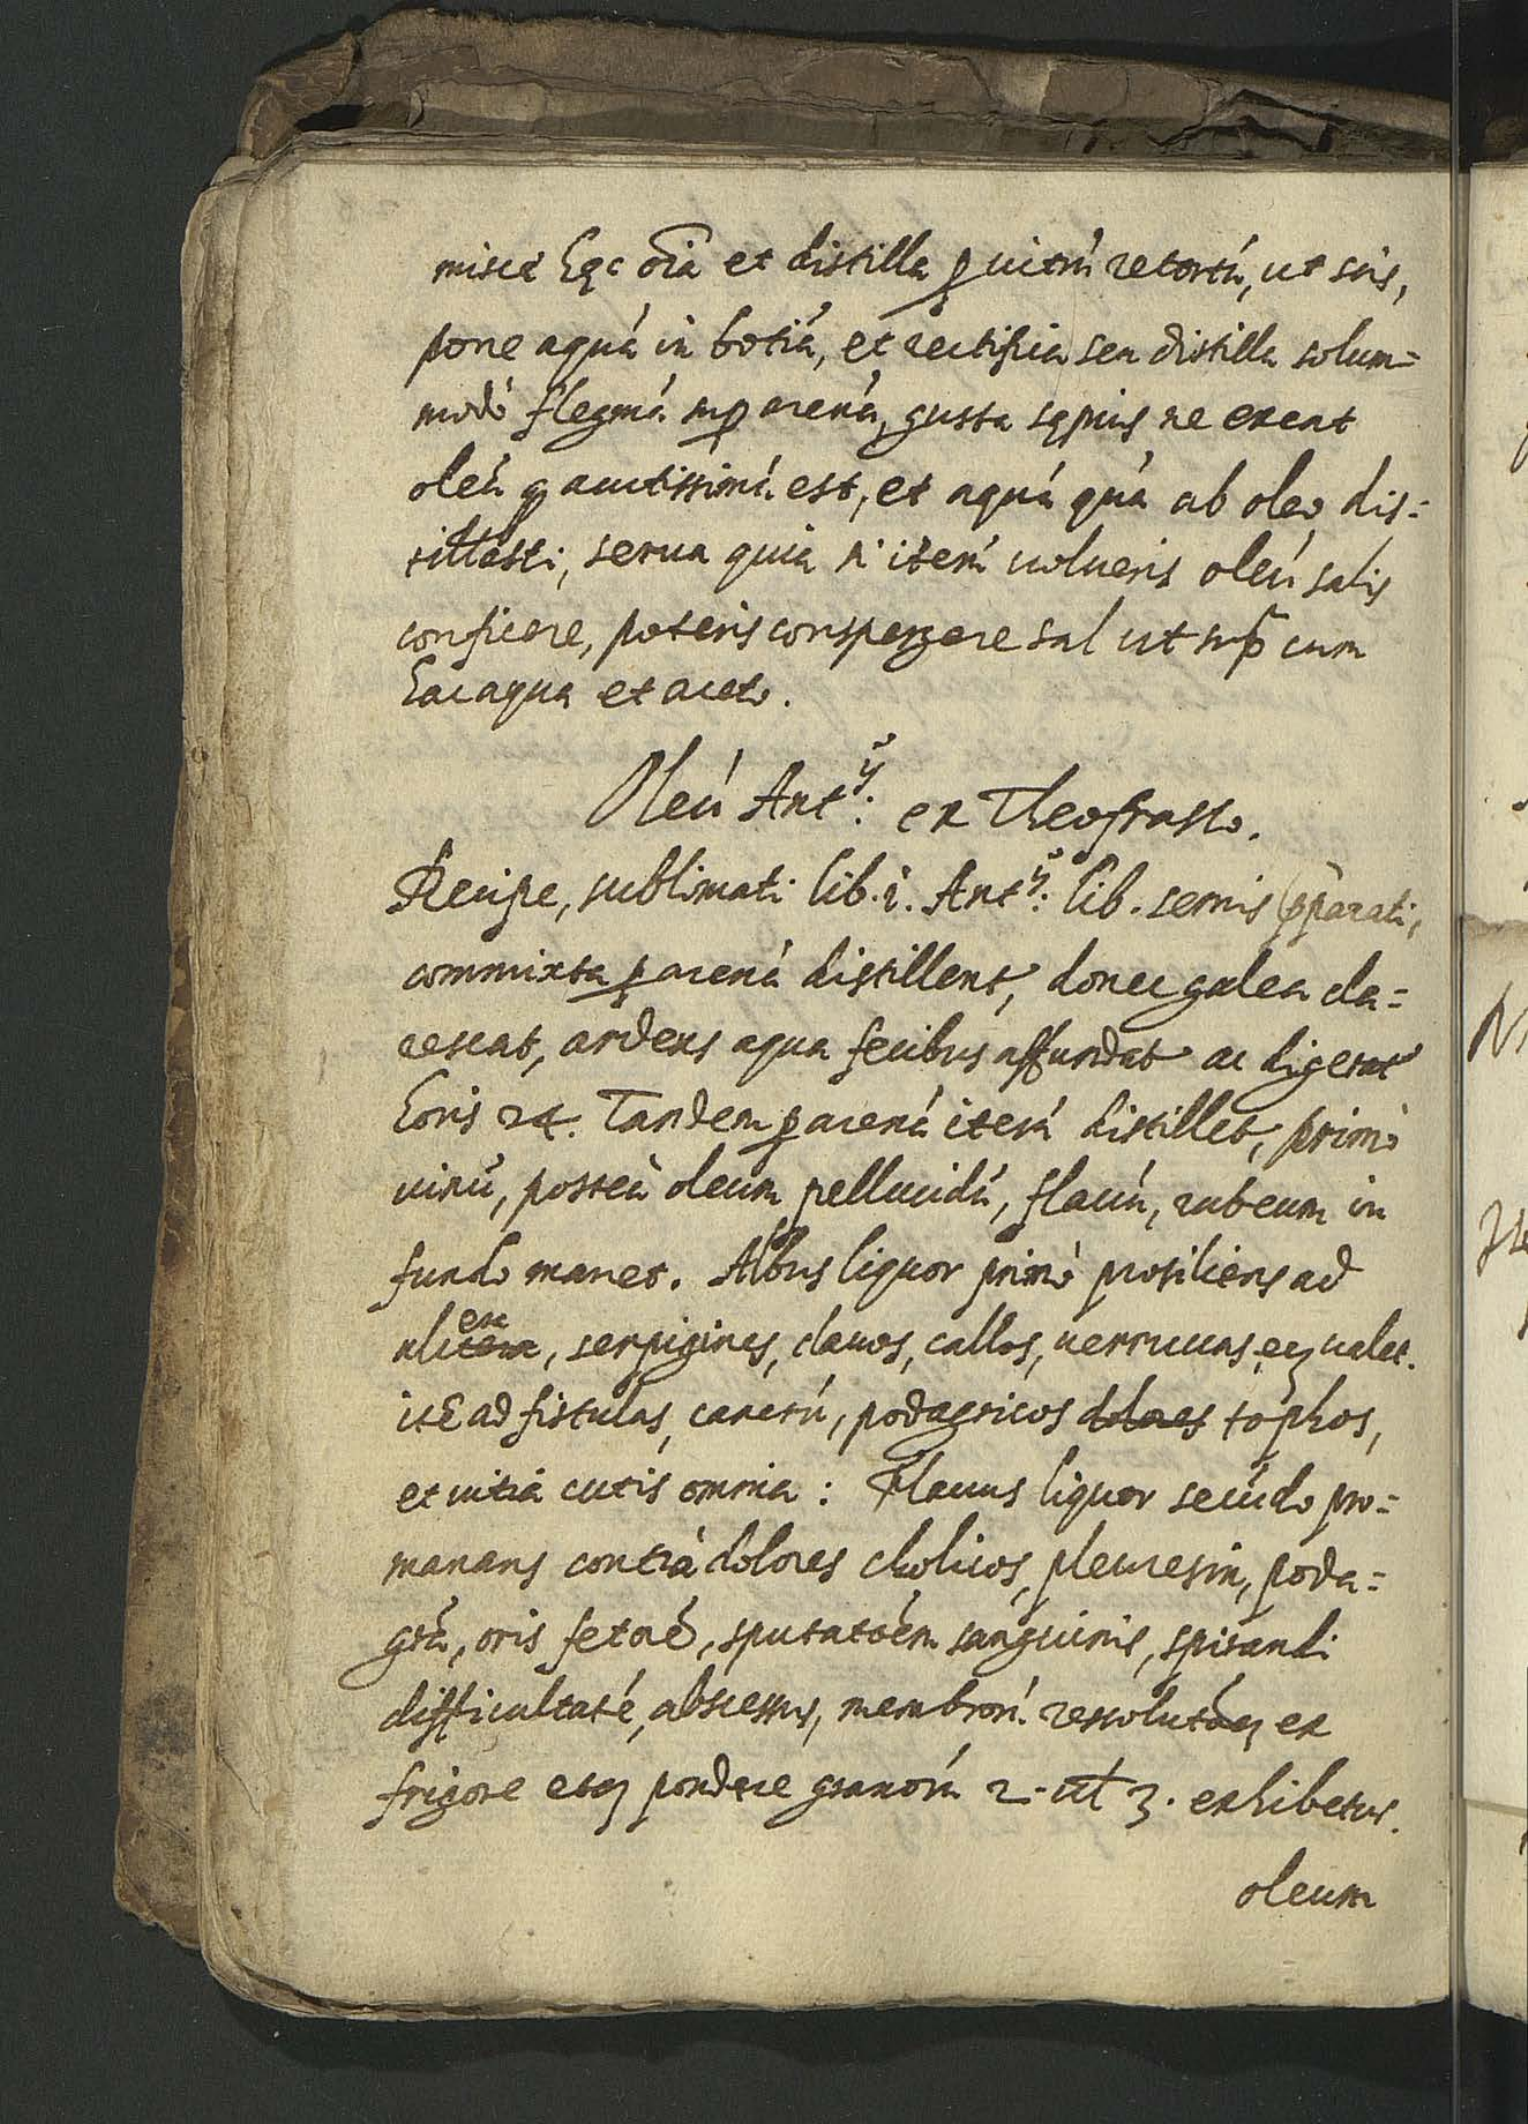 misce hęc oĩa et distilla ꝑ uitrú retortú, ut scis,
pone aquá in botiá, et rectifica seu distilla solum=
modò flegmá sup arená, gusta sępius ne exeat
oleú acutissimú est, et aquá quá ab oleo dis=
tillasti, serua quia si iterú uolueris oleú salis
conficere, poteris conspergere sal ut sup̃ cum
hac aqua et aceto.
Oleú Antij: ex Theofrasto.
Recipe, sublimati lib. i. Antij: lib. semis p̃parati,
commixta ꝑ arená distillent, donec galea cla=
rescat, ardens aqua fecibus affundat ac digerat
horis 24. Tandem ꝑ arená iterú distillet, primò
uinú, posteà oleum pellucidú, flauú, rubeum in
fundo manet. Albus liquor primò prosiliens ad
ulcera, serpigines, clauos, callos, uerrucas, ualet.
ité ad fistulas, cancrú, podagricos dolores tophos,
et uitia cutis omnia: Flauus liquor secúdo pro=
manans contrà dolores cholicos, pleuresin, poda=
grá, oris fetoré, sputatoém sanguinis, spirandi
difficultaté, abscessus, membrorú resolutóẽ ex
frigore pondere granorú 2. ut 3. exhibetur.
oleum